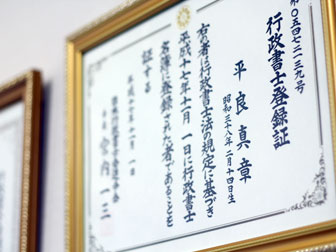 第〇五四七二一三九号
行政書士登録証
平良真章
昭和三十八年二月十四日生
右者は行政書士法の規定に基づき
平成十七年十一月一日に行政書士
名簿に登録された者であることを
証する
平成十七年十一月一日
日本行政書士会連合会
会長 宮内一三